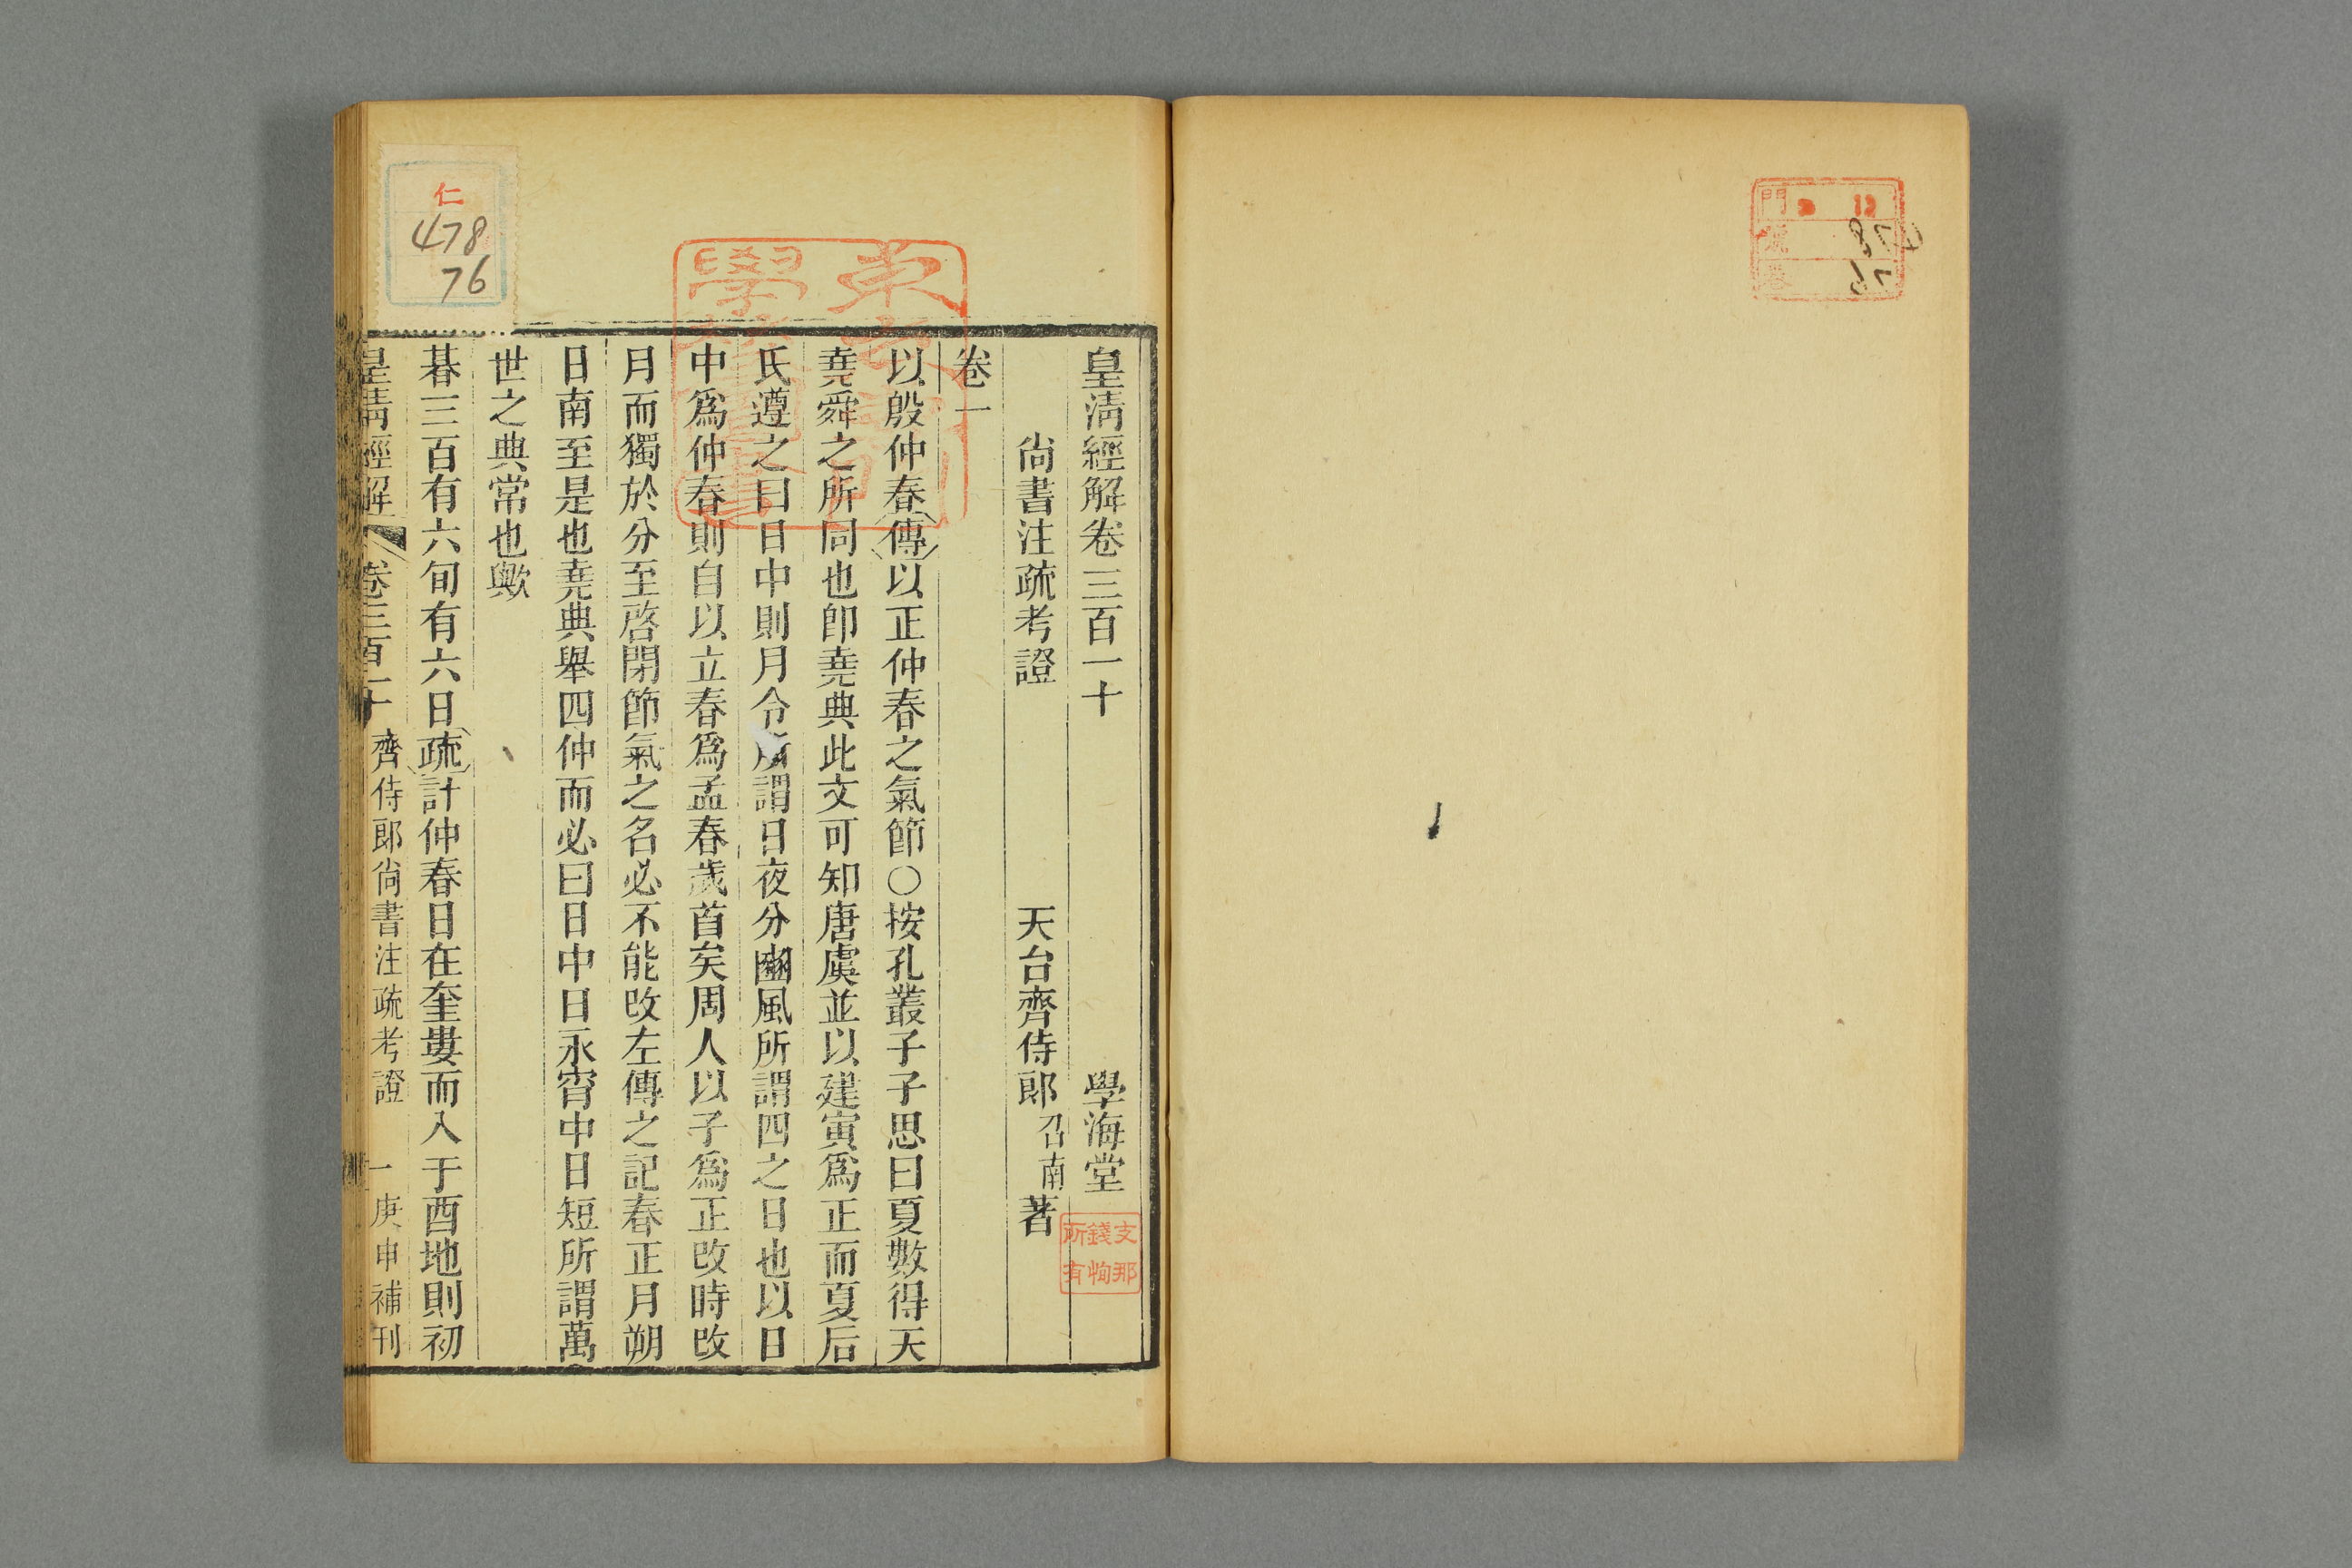 皇淸經解卷三百一十
學海堂
尙書注疏考證
天台齊侍郞召南著
卷一
以殷仲春傳以正仲春之氣節○按孔叢子子思曰夏數得天
堯舜之所同也卽堯典此文可知唐虞並以建寅爲正而夏后
氏遵之曰日中則月令所謂日夜分豳風所謂四之日也以日
中爲仲春則自以立春爲孟春歲首矣周人以子爲正改時改
月而獨於分至啓閉節氣之名必不能改左傳之記春正月朔
日南至是也堯典舉四仲而必曰日中日永宵中日短所謂萬
世之典常也歟
朞三百有六旬有六日疏計仲春日在奎婁而入于酉地則初
皇淸經解
卷三百一十
齊侍郞尙書注疏考證
一
庚申補刊
仁
478
76
支那
錢恂
所有
門